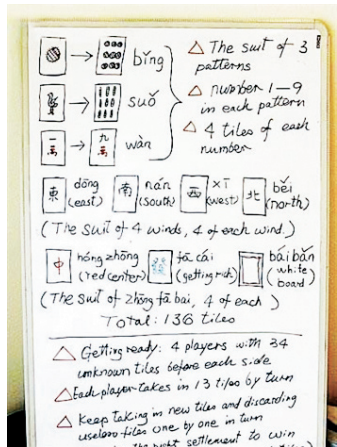 bǐng
suǒ
一萬 九萬 wàn
△ The suit of 3 patterns
△ number 1—9 in each pattern
△ 4 tiles of each number
東 dōng (east) 南 nán (south) 西 xī (west) 北 běi (north)
(The suit of 4 winds, 4 of each wind.)
中 hóng zhōng (red center) fā cái (getting rich) bái bǎn (white board)
(The suit of zhōng fā bái, 4 of each)
Total: 136 tiles
△ Getting ready: 4 players with 34
unknown tiles before each side
△ Each player takes in 13 tiles by turn
△ Keep taking in new tiles and discarding
useless tiles one by one in turn
the right settlement to win